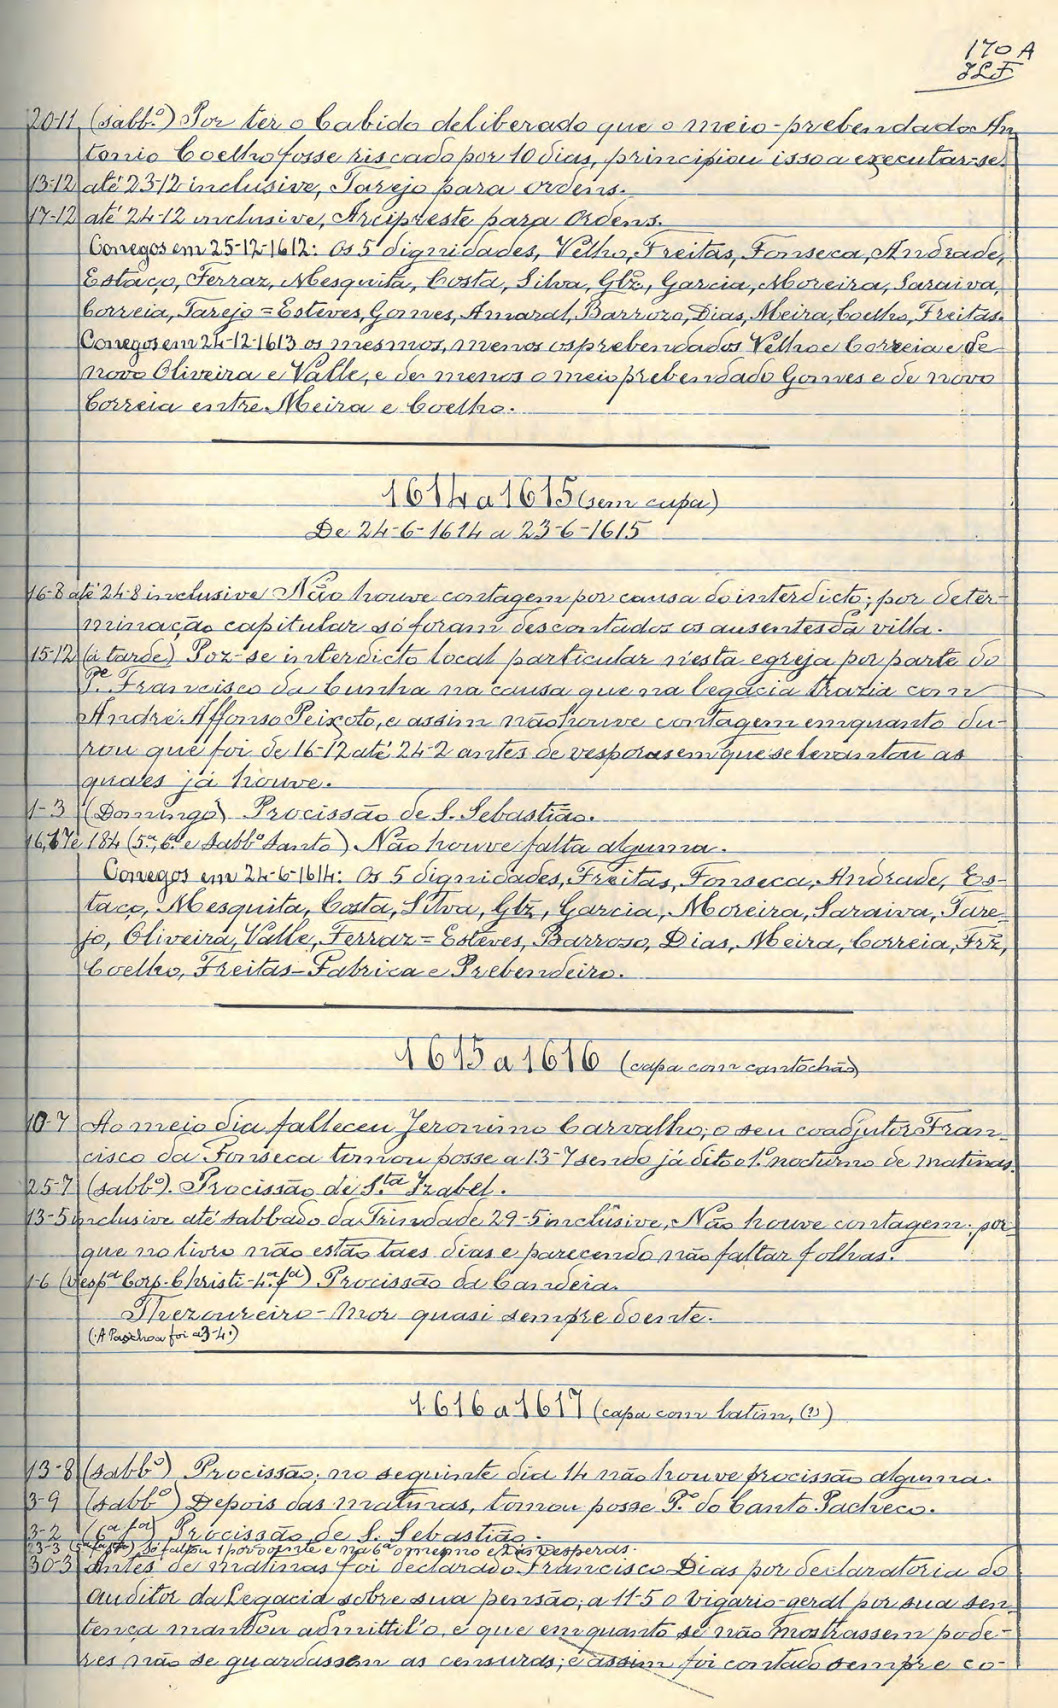 170 A
JLF
20-11 (sabb.º) Por ter o Cabido deliberado que o meio-prebendado An
tonio Coelho fosse riscado por 10 dias, principiou isso a executar-se.
13-12 até 23-12 inclusive, Tarejo para ordens.
17-12 até 24-12 inclusive, Arcipreste para Ordens.
Conegos em 25-12-1612: Os 5 dignidades, Velho, Freitas, Fonseca, Andrade,
Estaço, Ferraz, Mesquita, Costa, Silva, Glz, Garcia, Moreira, Saraiva,
Correia, Tarejo = Esteves, Gomes, Amaral, Barrozo, Dias, Meira, Coelho, Freitas.
Conegos em 24-12-1613 os mesmos, menos os prebendados Velho e Correia e de
novo Oliveira e Valle, e de menos o meio prebendado Gomes e de novo
Correia entre Meira e Coelho.
1614 a 1615 (sem capa)
De 24-6-1614 a 23-6-1615
16-8 até 24-8 inclusive Não houve contagem por causa do interdicto; por deter-
minação capitular só foram descontados os ausentes da villa.
15-12 (á tarde) Poz-se interdicto local particular n'esta egreja por parte do
Pe. Francisco da Cunha na causa que na legacia trazia com
André Affonso Peixoto, e assim não houve contagem emquanto du-
rou que foi de 16-12 até 24-2 antes de vesporas em que se levantou as
quaes já houve.
1-3 (Domingo) Procissão de S. Sebastião.
16, 17 e 18-4 (5ª, 6ª e sabbº santo) Não houve falta alguma.
Conegos em 24-6-1614: Os 5 dignidades, Freitas, Fonseca, Andrade, Es-
taço, Mesquita, Costa, Silva, Glz, Garcia, Moreira, Saraiva, Tare-
jo, Oliveira, Valle, Ferraz = Esteves, Barroso, Dias, Meira, Correia, Frz,
Coelho, Freitas - Fabrica e Prebendeiro.
1615 a 1616 (capa com cantochão)
10-7 Ao meio dia falleceu Jeronimo Carvalho; o seu coadjutor Fran-
cisco da Fonseca tomou posse a 13-7 sendo já dito o 1º nocturno de matinas.
25-7 (sabbº). Procissão de S.ta Izabel.
13-5 inclusive até sabbado da Trindade 29-5 inclusive, Não houve contagem por-
que no livro não estão taes dias e parecendo não faltar folhas.
1-6 (vespª Corp. Christi - 4ª fª) Procissão da Candeia.
Thezoureiro-Mor quasi sempre doente.
(A Paschoa foi a 3-4.)
1616 a 1617 (capa com latim, (?))
13-8 (sabbº) Procissão; no seguinte dia 14 não houve procissão alguma.
3-9 (sabbº) Depois das matinas, tomou posse P.º do Canto Pacheco.
3-2 (6ª fª) Procissão de S. Sebastião.
23-3 (5ª fª stª) Só faltou 1 por doente e na 6ª o mesmo e 2 ás vesperas.
30-3 Antes de matinas foi declarado Francisco Dias por declaratoria do
auditor da Legacia sobre sua pensão; a 11-5 o vigario-geral por sua sen
tença mandou admittil'o, e que emquanto se não mostrassem pode-
res não se guardassem as censuras; e assim foi contado sempre co-